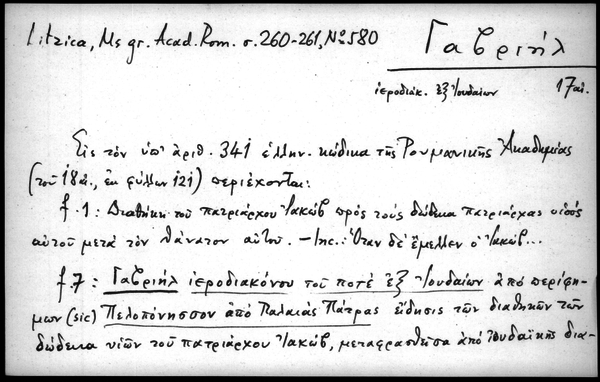 Litzica, Ms gr. Acad. Rom. σ. 260-261, № 580
Γαβριήλ
ἱεροδιάκ. ἐξ Ἰουδαίων 17 αἰ.
Εἰς τὸν ὑπ' ἀριθ. 341 ἑλλην. κώδικα τῆς Ρουμανικῆς Ἀκαδημίας
(τοῦ 18 αἰ., ἐκ φύλλων 121) περιέχονται:
f. 1: Διαθήκη τοῦ πατριάρχου Ἰακώβ πρὸς τοὺς δώδεκα πατριάρχας υἱούς
αὐτοῦ μετὰ τὸν θάνατον αὐτοῦ. — Inc.: Ὅταν δὲ ἔμελλεν ὁ Ἰακώβ...
f. 7: Γαβριήλ ἱεροδιακόνου τοῦ ποτὲ ἐξ Ἰουδαίων ἀπὸ περίφη-
μων (sic) Πελοπόνησσον ἀπὸ Παλαιάς Πάτρας εἴδησις τῶν διαθηκῶν τῶν
δώδεκα υἱῶν τοῦ πατριάρχου Ἰακώβ, μεταφρασθεῖσα ἀπὸ Ἰουδαϊκῆς δια-